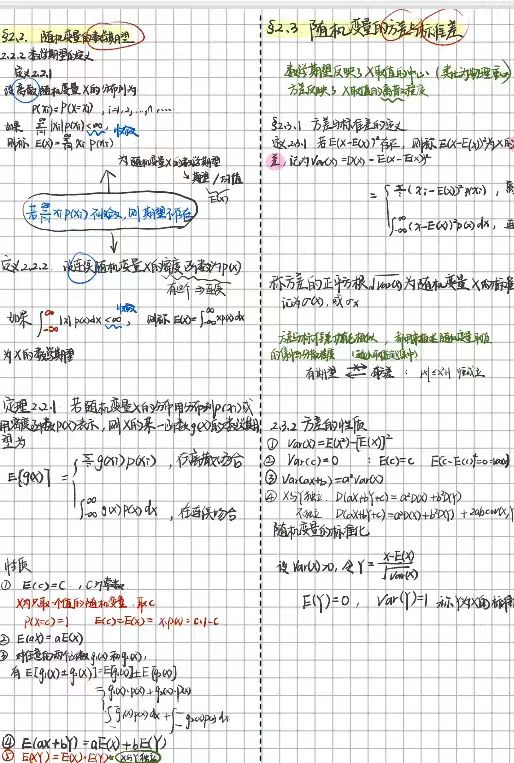 §2.2. 随机变量的数学期望
2.2.2 数学期望的定义
定义2.2.1
设离散随机变量X的分布列为
P(xi)=P(X=xi) , i=1,2,…,n,…
如果 ∑|xi|p(xi)<∞ 收敛
则称 E(X)=∑xi p(xi)
为随机变量X的数学期望
期望/均值
E(X)
若∑xi p(xi)不收敛, 则期望不存在
定义2.2.2 设连续随机变量X的密度函数为p(x)
如果 ∫|x|p(x)dx<∞, 收敛 则称 E(X)=∫xp(x)dx
为X的数学期望
定理2.2.1 若随机变量X的分布用分布列p(xi)或
用密度函数p(x)表示, 则X的某一函数g(X)的数学期
望为
E[g(X)] = ∑g(xi)p(xi) , 在离散场合
∫g(x)p(x)dx , 在连续场合
性质
① E(c)=C , C为常数
X为只取一个值的随机变量, 取C
P(X=c)=1 E(c)=E(X)
② E(aX)=aE(X)
③ 对任意的两个函数g₁(x)和g₂(x),
有 E[g₁(X)±g₂(X)]=E[g₁(X)]±E[g₂(X)]
④ E(aX+bY)=aE(X)+bE(Y)
⑤ E(XY)=E(X)·E(Y) X与Y独立
§2.3 随机变量的方差与标准差
数学期望反映了X取值的中心
方差反映了X取值的离散程度
§2.3.1 方差与标准差的定义
定义2.3.1 若E(X-E(X))²存在, 则称E(X-E(X))²为X的
差, 记为Var(X)=D(X)=E(X-E(X))²
= ∑(xi-E(X))²p(xi),
∫(x-E(X))²p(x)dx,
称方差的正平方根√Var(X)为随机变量X的标准
记为σ(X), 或σx
2.3.2 方差的性质
① Var(X)=E(X²)-[E(X)]²
② Var(c)=0 : E(c)=c
③ Var(aX+b)=a²Var(X)
④ X与Y独立 D(aX+bY+c)=a²D(X)+b²D(Y)
不独立 D(aX+bY+c)=a²D(X)+b²D(Y)+2abcov(X,Y
随机变量的标准化
设Var(X)>0, 令Y=X-E(X)/√Var(X)
E(Y)=0, Var(Y)=1 称Y为X的标准